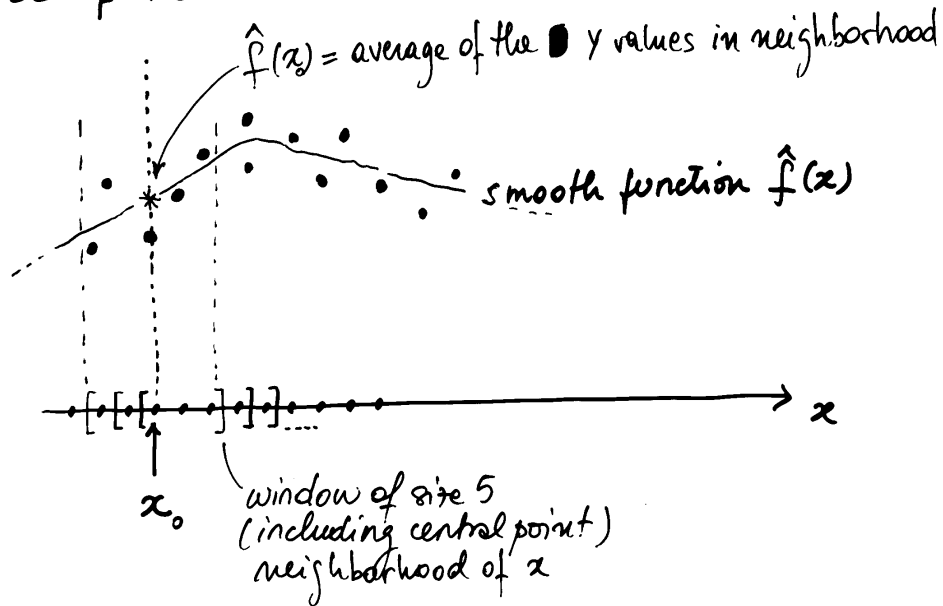 f̂(x₀) = average of the y values in neighborhood
smooth function f̂(x)
x
x₀
window of size 5
(including central point)
neighborhood of x